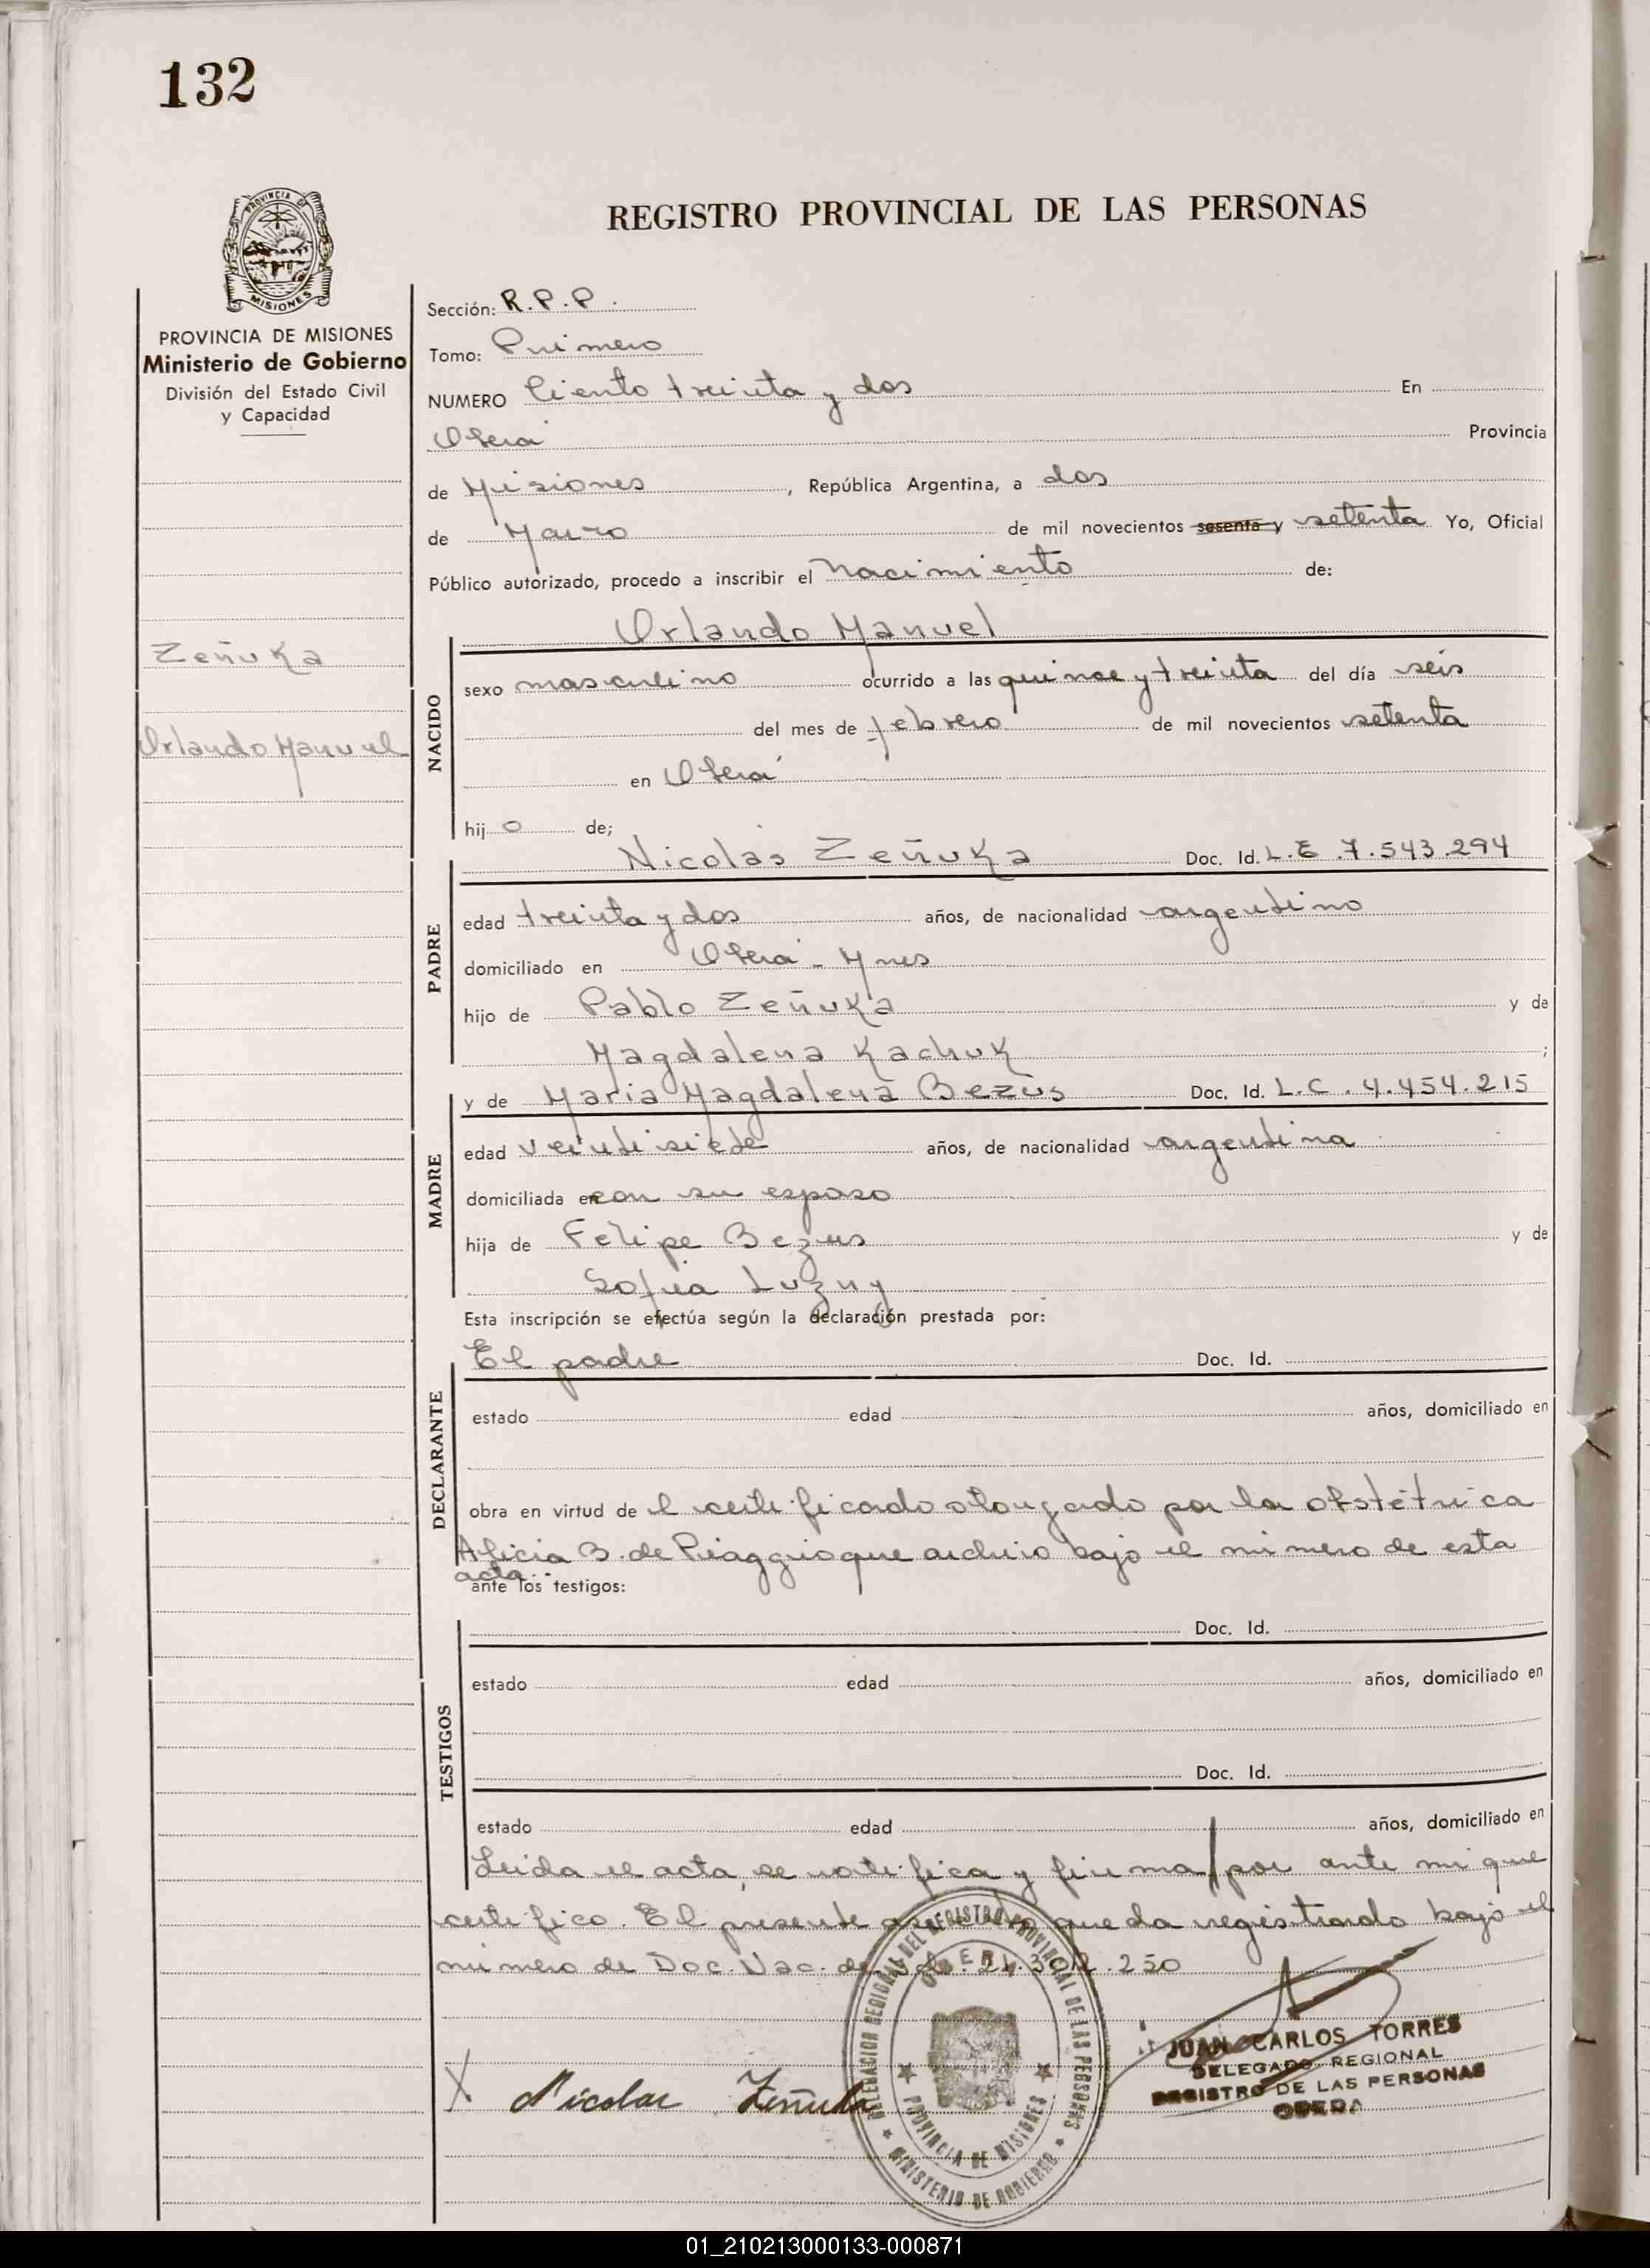 132
REGISTRO PROVINCIAL DE LAS PERSONAS
PROVINCIA DE
MISIONES
PROVINCIA DE MISIONES
Ministerio de Gobierno
División del Estado Civil
y Capacidad
Zeñuka
Orlando Manuel
Sección: R.P.P.
Tomo: Primero
NUMERO Ciento treinta y dos En
Oberá Provincia
de Misiones, República Argentina, a dos
de Marzo de mil novecientos sesenta y setenta Yo, Oficial
Público autorizado, procedo a inscribir el Nacimiento de:
Orlando Manuel
NACIDO
sexo masculino ocurrido a las quince y treinta del día seis
del mes de febrero de mil novecientos setenta
en Oberá
hij o de;
Nicolás Zeñuka Doc. Id. L.E 7.543.294
PADRE
edad treinta y dos años, de nacionalidad argentino
domiciliado en Oberá - Mnes
hijo de Pablo Zeñuka y de
Magdalena Kachuk ;
y de Maria Magdalena Bezus Doc. Id. L.C. 4.454.215
MADRE
edad veintisiete años, de nacionalidad argentina
domiciliada en con su esposo
hija de Felipe Bezus y de
Sofia Luzny
Esta inscripción se efectúa según la declaración prestada por:
El padre Doc. Id.
DECLARANTE
estado edad años, domiciliado en
obra en virtud de el certificado otorgado por la obstétrica
Alicia B. de Piaggio que archivo bajo el número de esta
acta.
ante los testigos:
Doc. Id.
TESTIGOS
estado edad años, domiciliado en
Doc. Id.
estado edad años, domiciliado en
Leida el acta, se notifica y firma por ante mi que
certifico. El presente queda registrado bajo el
número de Doc. Nac. de 250
DELEGACION REGIONAL DEL REGISTRO PROVINCIAL DE LAS PERSONAS
OBERA
PROVINCIA DE MISIONES
MINISTERIO DE GOBIERNO
X Nicolas Zeñuka
JUAN CARLOS TORRES
DELEGADO REGIONAL
REGISTRO DE LAS PERSONAS
OBERA
01_210213000133-000871